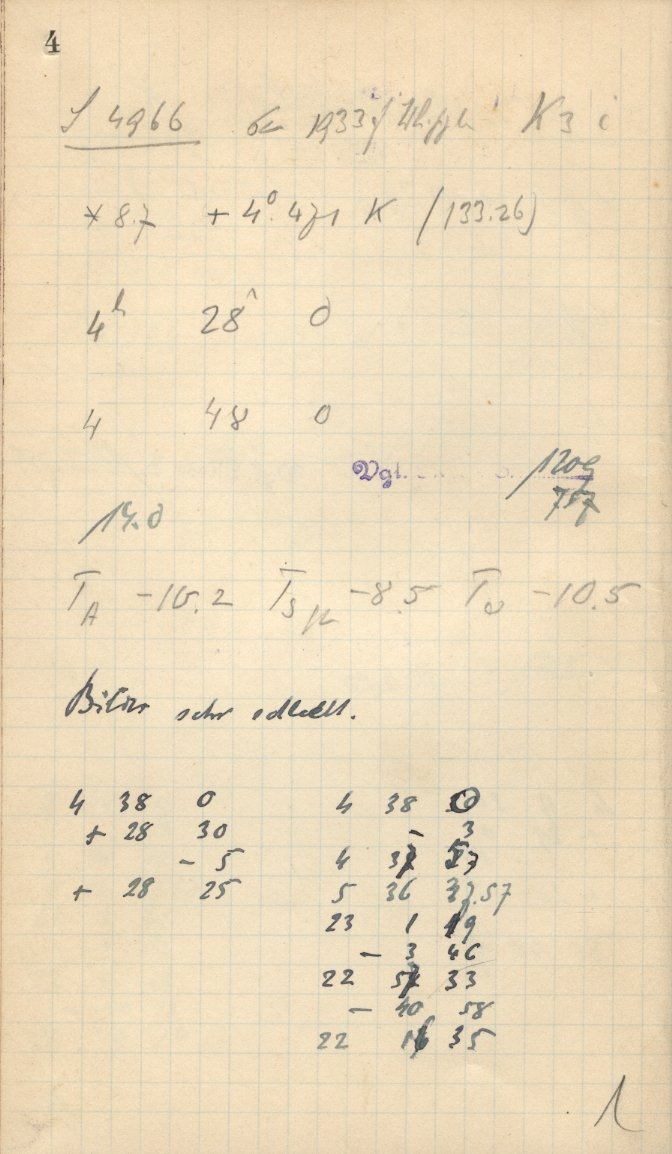 4
S 4966 1933 K 3 i
* 8.7 + 4°. 471 K (133.26)
4h 28 0
4 48 0
Vgl.
1209
757
14.0
TA -10.2 TSp -8.5 T -10.5
Bilder sehr schlecht.
4 38 0
+ 28 30
- 5
+ 28 25
4 38 0
- 3
4 37 57
5 36 37.57
23 1 19
- 3 46
22 57 33
- 40 58
22 16 35
1